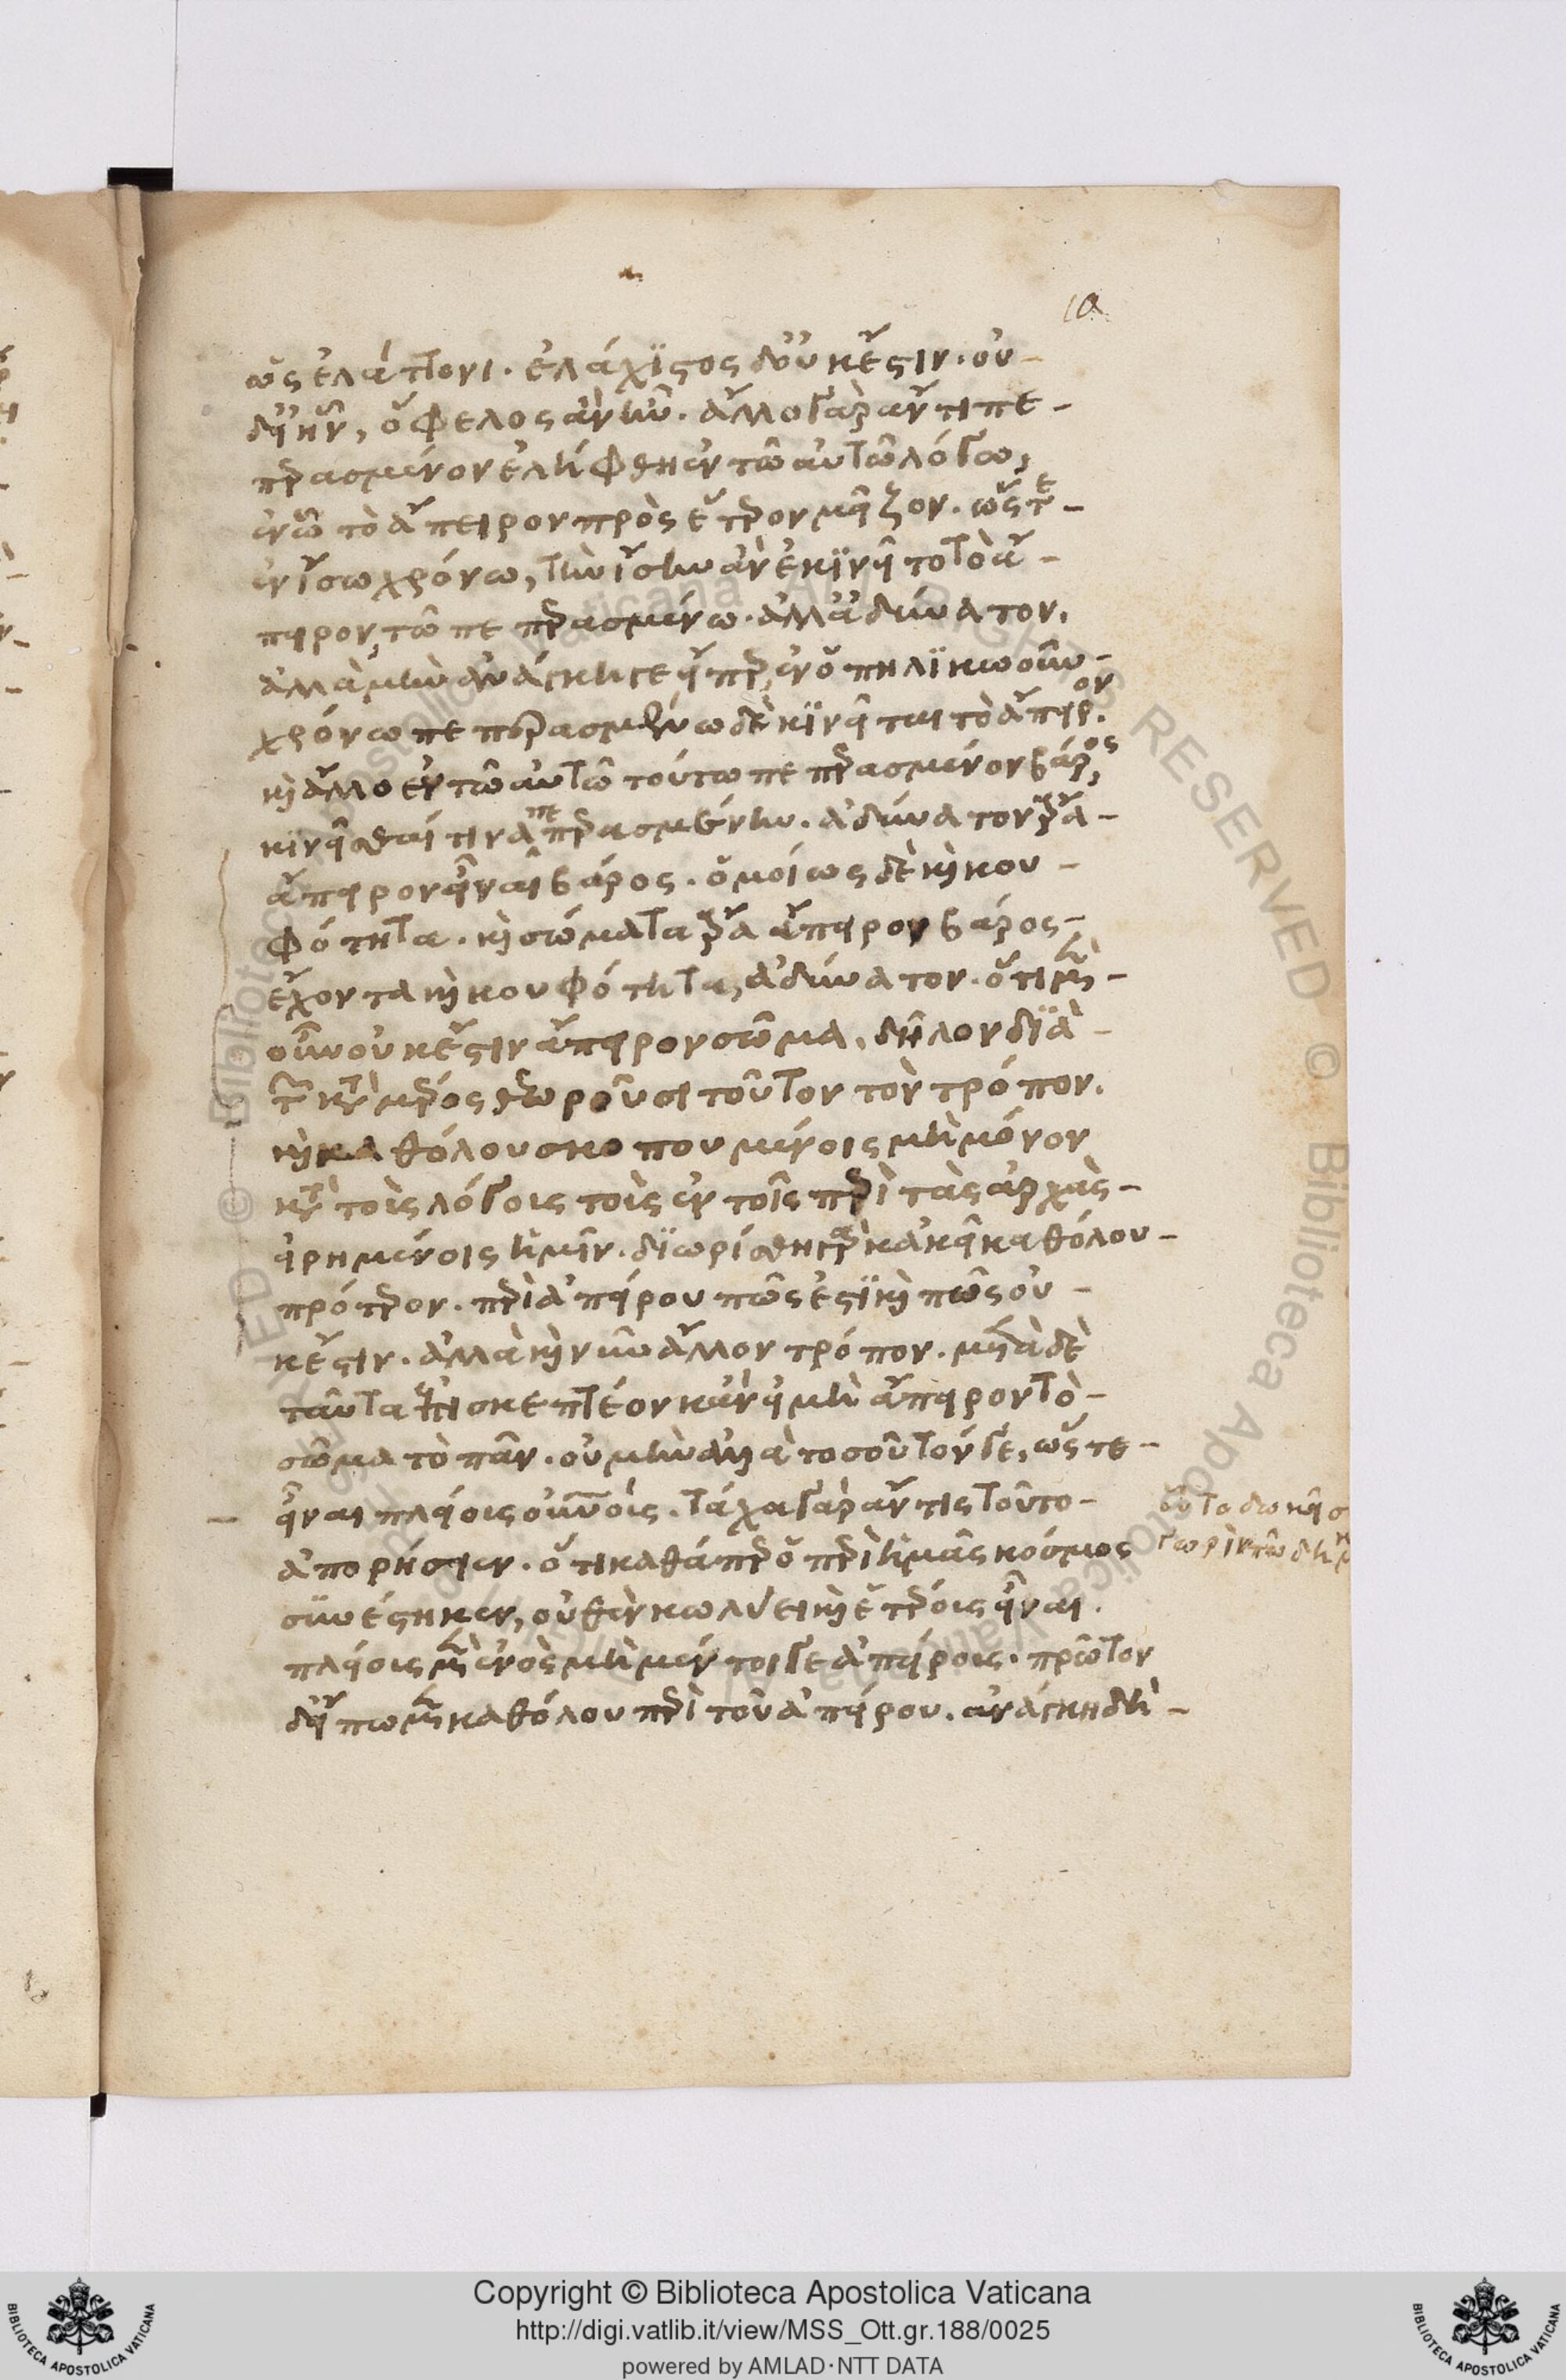 ια
ὡς ἐλάττονι. ἐλάχϊστος δ' οὐκ ἔστιν. οὐ-
δ' εἰ ἦν, ὄφελος ἂν ἦν. ἄλλο γὰρ ἄν τι πε-
περασμένον ἐλήφθη ἐν τῶ αὐτῶ λόγω,
ἐν ὧ τὸ ἄπειρον πρὸς ἕτερον μεῖζον. ὥστε-
ἐν ἴσω χρόνω, τὴν ἴσην ἂν ἐκϊνεῖτο τὸ ἄ-
πειρον, τῶ πεπερασμένω. ἀλλ' ἀδύνατον.
ἀλλὰ μὴν ἀνάγκη γε εἴπερ ἐν ὁπηλϊκωοῦν-
χρόνω πεπερασμένω δὲ κϊνεῖται τὸ ἄπειρον.
καὶ ἄλλο ἐν τῶ αὐτῶ τούτω πεπερασμένον βάρος,
κινεῖσθαί τινα πεπερασμένην. ἀδύνατον ἄρα-
ἄπειρον εἶναι βάρος. ὁμοίως δὲ καὶ κου-
φότητα. καὶ σώματα ἄρα ἄπειρον βάρος-
ἔχοντα καὶ κουφότητα, ἀδύνατον. ὅτι μὲν-
οὖν οὐκ ἔστιν ἄπειρον σῶμα, δῆλον δϊὰ-
τῶν κατὰ μέρος θεωροῦσι τοῦτον τὸν τρόπον.
καὶ καθόλου σκοπουμένοις μὴ μόνον
κατὰ τοὺς λόγους τοὺς ἐν τοῖς περὶ τὰς ἀρχὰς-
εἰρημένοις ἡμῖν. δϊωρίσθη γὰρ κἀκεῖ καθόλου-
πρότερον. περὶ ἀπείρου πῶς ἐστϊ καὶ πῶς οὐ-
κ ἔστιν. ἀλλὰ καὶ νῦν ἄλλον τρόπον. μετὰ δὲ
ταῦτα ἐπισκεπτέον κἂν εἰ μὴ ἄπειρον τὸ-
σῶμα τὸ πᾶν. οὐ μὴν ἀλλὰ τοσοῦτόν γε, ὥστε-
εἶναι πλείους οὐρανούς. τάχα γὰρ ἄν τις τοῦτο-
ἀπορήσειεν. ὅτι καθάπερ ὁ περὶ ἡμᾶς κόσμος
συνέστηκεν, οὐθὲν κωλύει καὶ ἑτέρους εἶναι.
πλείους μὲν ἑνὸς μὴ μέντοι γε ἀπείρους. πρῶτον
δ' εἴπωμεν καθόλου περὶ τοῦ ἀπείρου. ἀνάγκη δὴ-
Copyright © Biblioteca Apostolica Vaticana
http://digi.vatlib.it/view/MSS_Ott.gr.188/0025
powered by AMLAD·NTT DATA
BIBLIOTECA APOSTOLICA VATICANA
BIBLIOTECA APOSTOLICA VATICANA